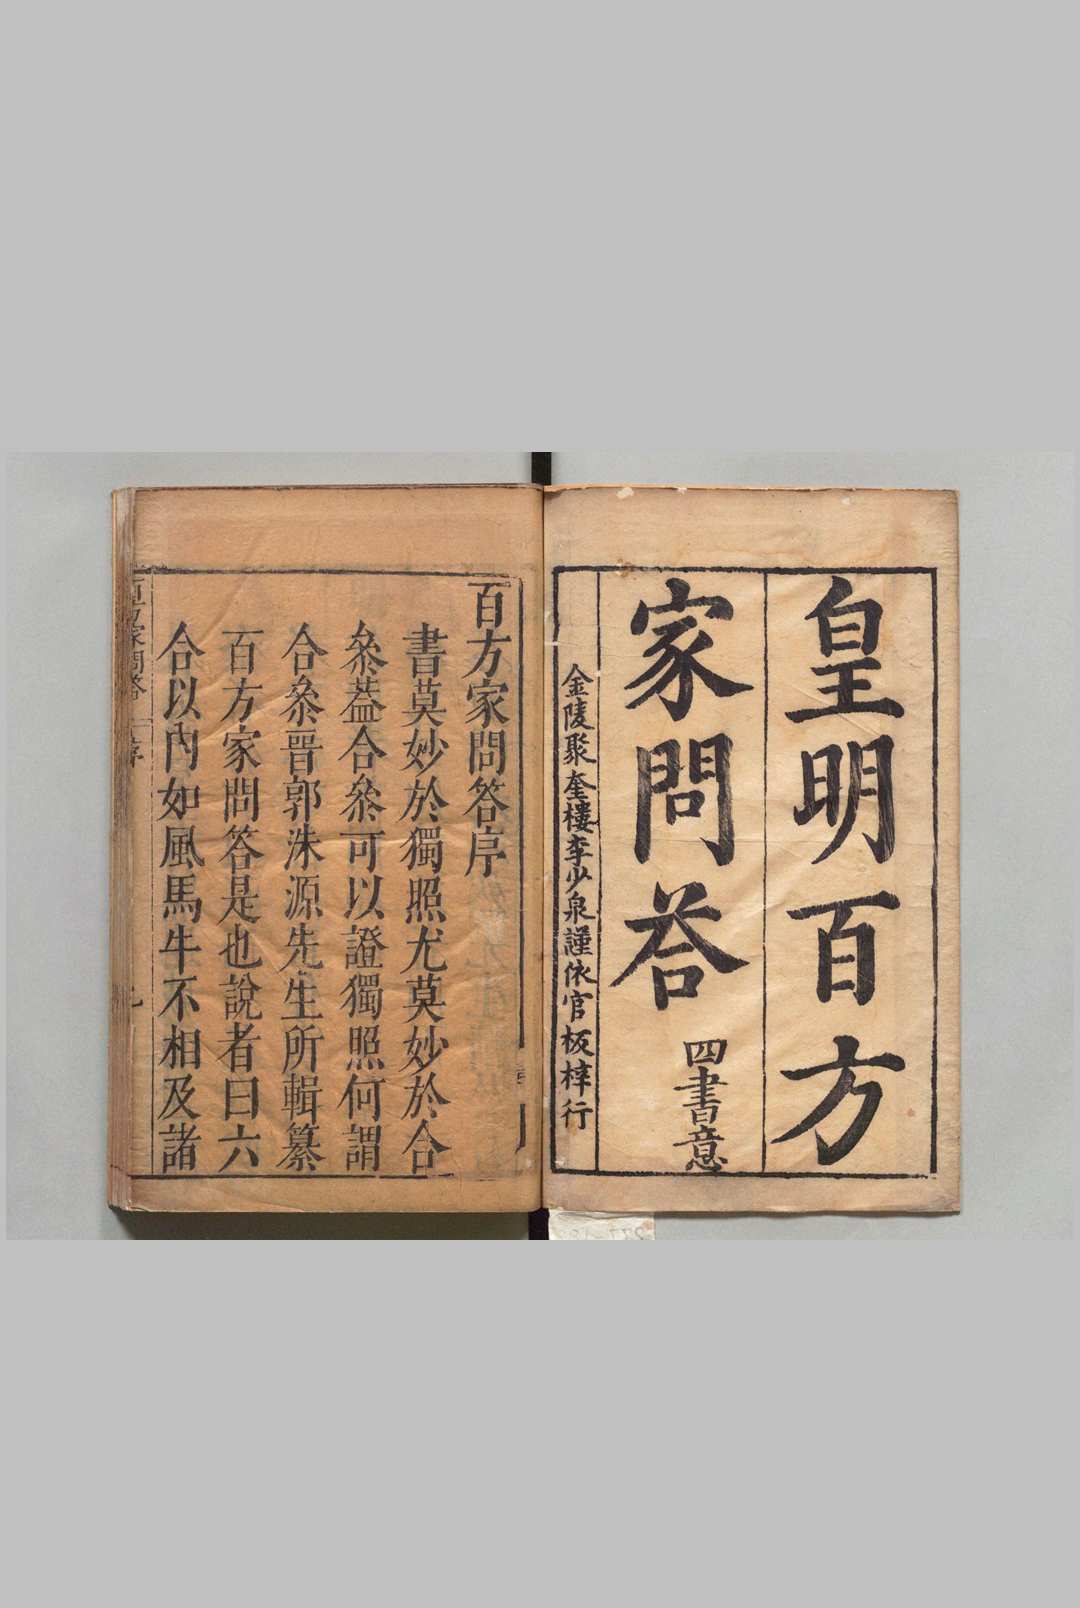 皇明百方
家問荅
四書意
金陵聚奎樓李少泉謹依官板梓行
百方家問答序
書莫妙於獨照尤莫妙於合
叅蓋合叅可以證獨照何謂
合叅晋郭洙源先生所輯纂
百方家問答是也說者曰六
合以內如風馬牛不相及諸
百方家問答
序